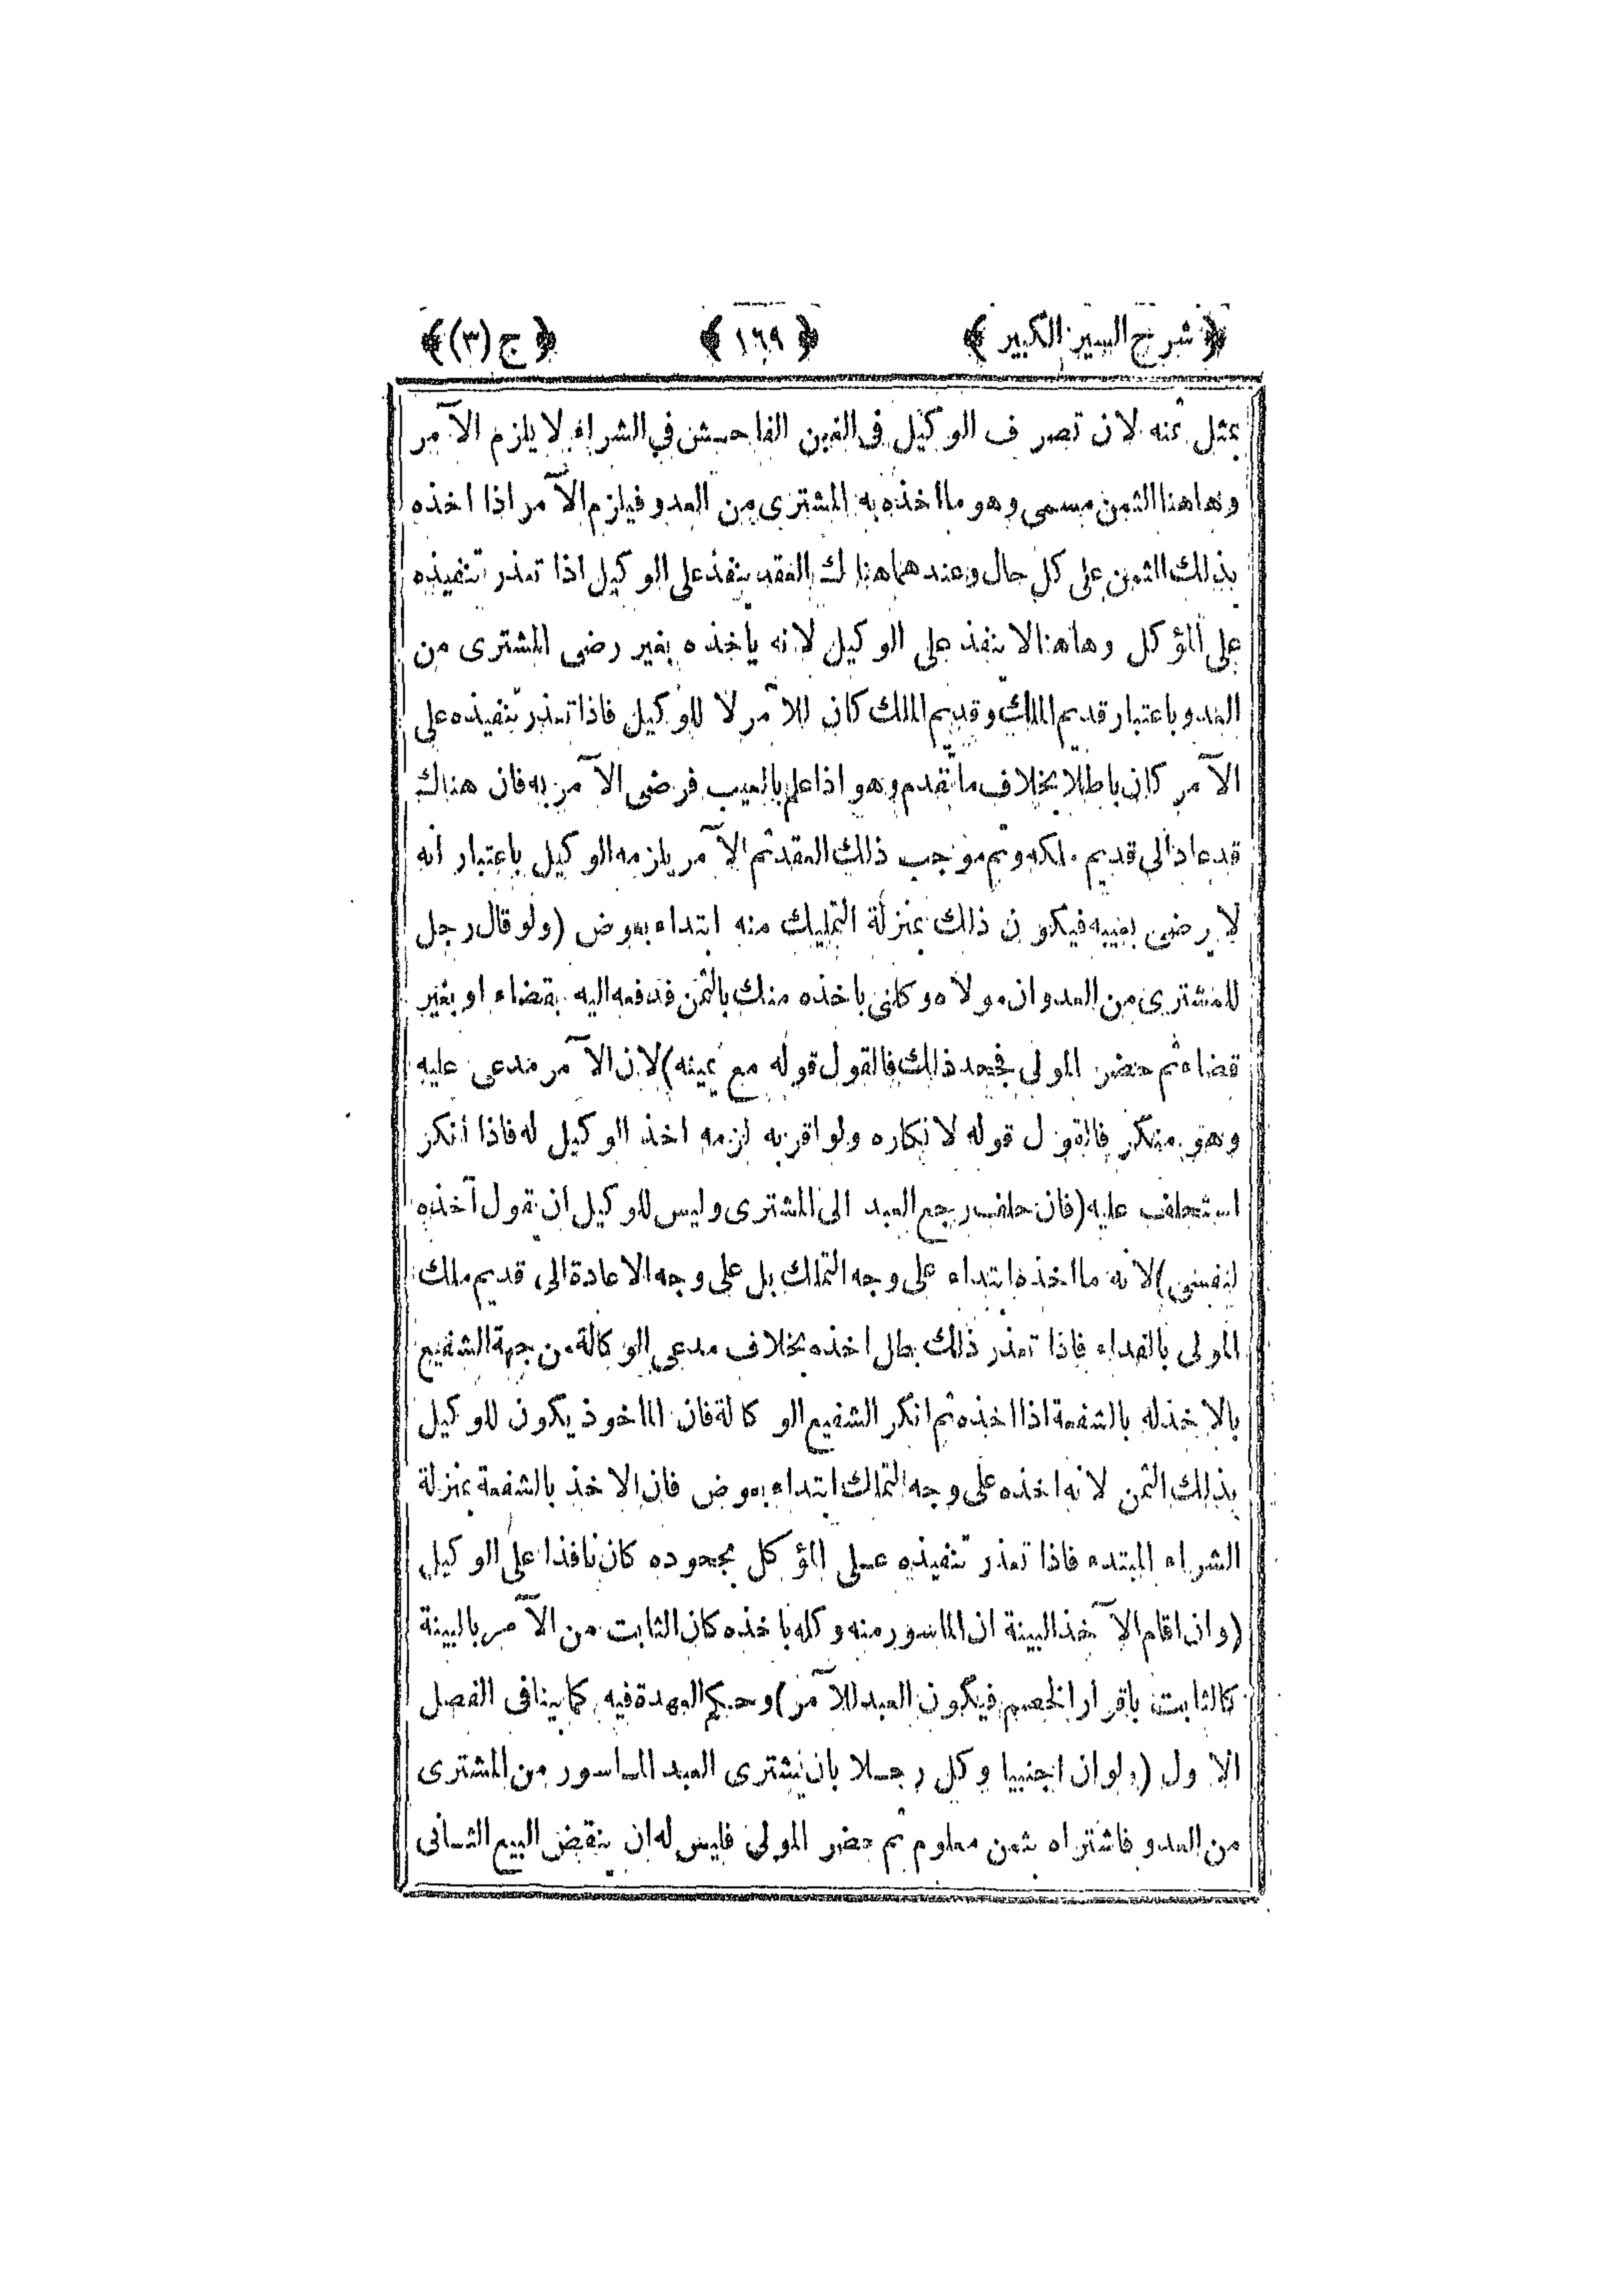 ﴿ شرح السير الكبير ﴾ ﴿ ١٦٩ ﴾ ﴿ ج (٣) ﴾
بمثل ثمنه لان تصرف الوكيل فى الغبن الفاحش في الشراء لا يلزم الآمر
وهاهنا الثمن مسمى وهو ما اخذه به المشترى من العدو فيلزم الآمر اذا اخذه
بذلك الثمن على كل حال وعندهما هنالك العقد ينفذ على الوكيل اذا تعذر تنفيذه
على المؤكل وهاهنا لا ينفذ على الوكيل لانه ياخذه بغير رضى المشترى من
العدو باعتبار قديم الملك وقديم الملك كان للآمر لا للوكيل فاذا تعذر تنفيذه على
الآمر كان باطلا بخلاف ما تقدم وهو اذا علم بالعيب فرضى الآمر به فان هناك
قد عاد الى قديم ملكه وتم موجب ذلك العقد ثم الآمر يلزمه الوكيل باعتبار انه
لا يرضى بعيبه فيكون ذلك بمنزلة التمليك منه ابتداء بعوض (ولو قال رجل
للمشترى من العدو ان مولاه وكلنى باخذه منك بالثمن فدفعه اليه بقضاء او بغير
قضاء ثم حضر المولى فجحد ذلك فالقول قوله مع يمينه) لان الآمر مدعى عليه
وهو منكر فالقول قوله لانكاره ولو اقر به لزمه اخذ الوكيل له فاذا أنكر
استحلف عليه (فان حلف رجع العبد الى المشترى وليس للوكيل ان يقول آخذه
لنفسى) لانه ما اخذه ابتداء على وجه التملك بل على وجه الاعادة الى قديم ملك
المولى بالفداء فاذا تعذر ذلك بطل اخذه بخلاف مدعى الوكالة من جهة الشفيع
بالاخذ له بالشفعة اذا اخذه ثم انكر الشفيع الوكالة فان الماخوذ يكون للوكيل
بذلك الثمن لانه اخذه على وجه التملك ابتداء بعوض فان الاخذ بالشفعة بمنزلة
الشراء المبتدء فاذا تعذر تنفيذه على المؤكل بجحوده كان نافذا على الوكيل
(وان اقام الآخذ البينة ان الماسور منه وكله باخذه كان الثابت من الآمر بالبينة
كالثابت باقرار الخصم فيكون العبد للآمر) وحكم العهدة فيه كما بينا فى الفصل
الاول (ولو ان اجنبيا وكل رجلا بان يشترى العبد الماسور من المشترى
من العدو فاشتراه بثمن معلوم ثم حضر المولى فليس له ان ينقض البيع الثانى